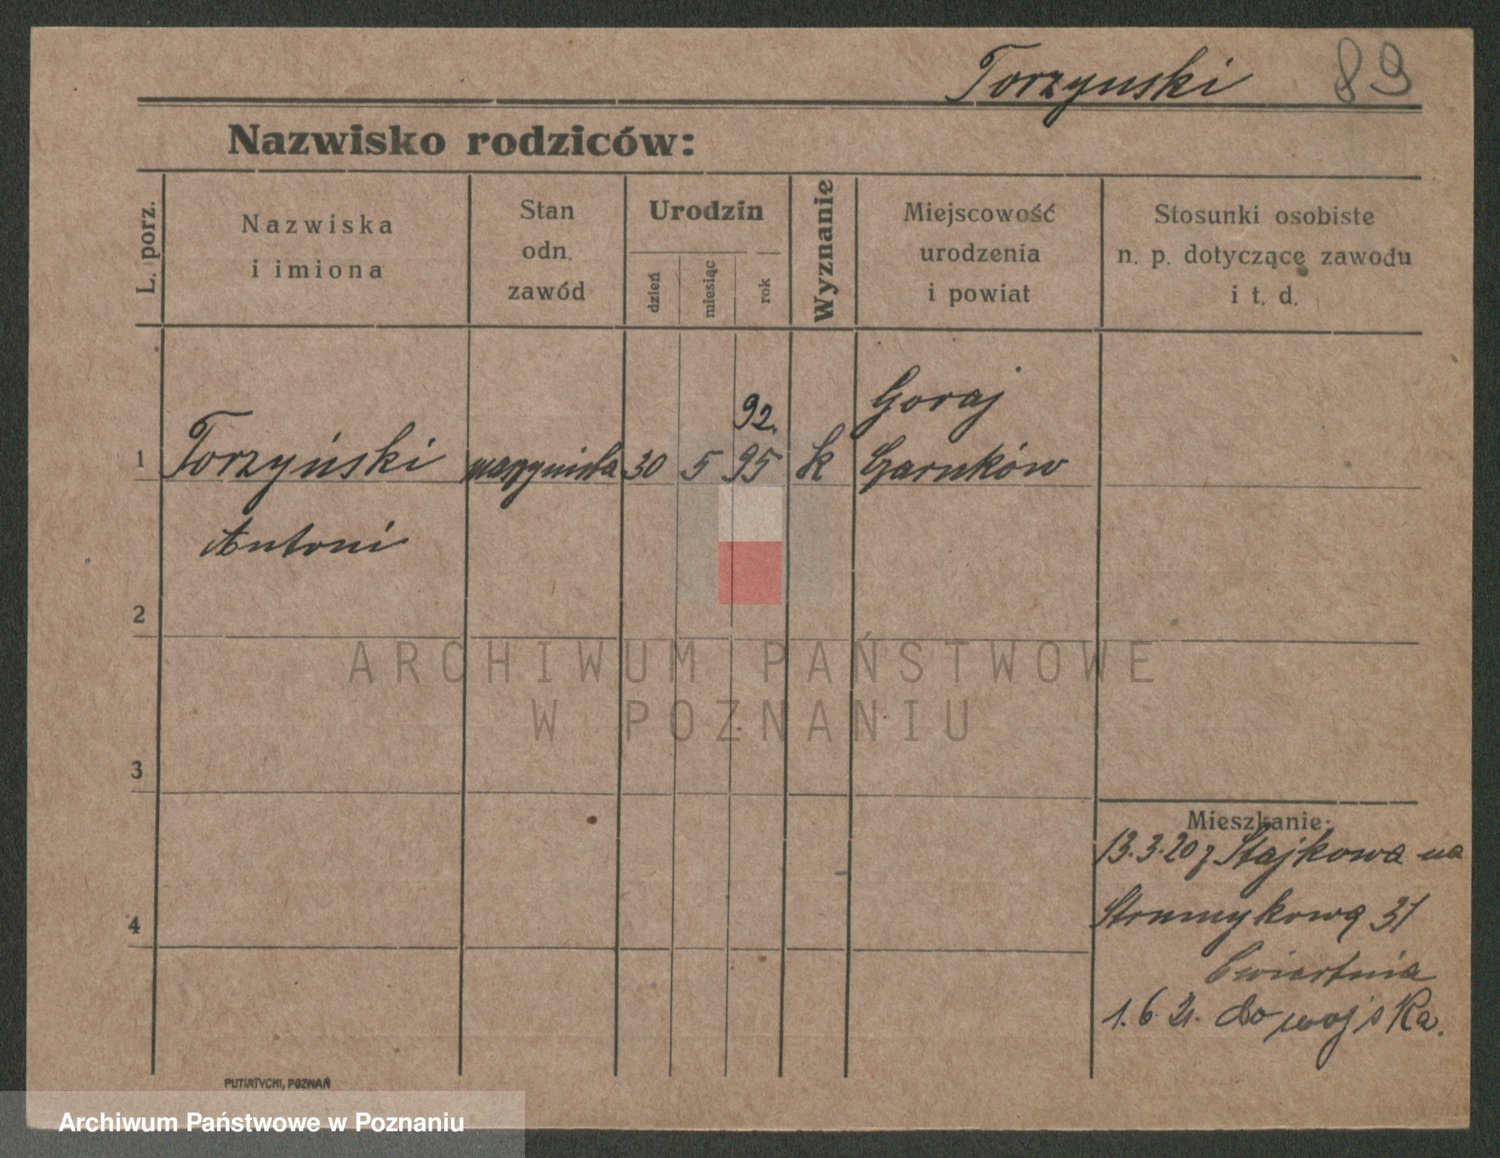 Torzynski 89
Nazwisko rodziców:
L. porz.
Nazwiska
i imiona
Stan
odn.
zawód
Urodzin
dzień
miesiąc
rok
Wyznanie
Miejscowość
urodzenia
i powiat
Stosunki osobiste
n. p. dotyczące zawodu
i t. d.
92. Goraj
1 Torzyński maszynista 30 5 95 k Czarnków
Antoni
2
ARCHIWUM PAŃSTWOWE
W POZNANIU
3
Mieszkanie:
13.3.20 z Stajkowa na
Strumykową 31
4
Cwiertnia
1.6.21. do wojska.
PUTIATYCKI, POZNAŃ
Archiwum Państwowe w Poznaniu